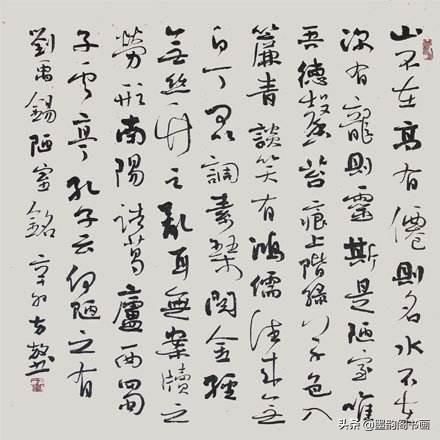 山不在高有僊則名水不在
深有龍則靈斯是陋室唯
吾德馨苔痕上階緑草色入
簾青談笑有鴻儒往來無
白丁可以調素琴閱金經
無絲竹之亂耳無案牘之
勞形南陽諸葛廬西蜀
子雲亭孔子云何陋之有
劉禹錫陋室銘辛卯
头条 @墨韵阁书画